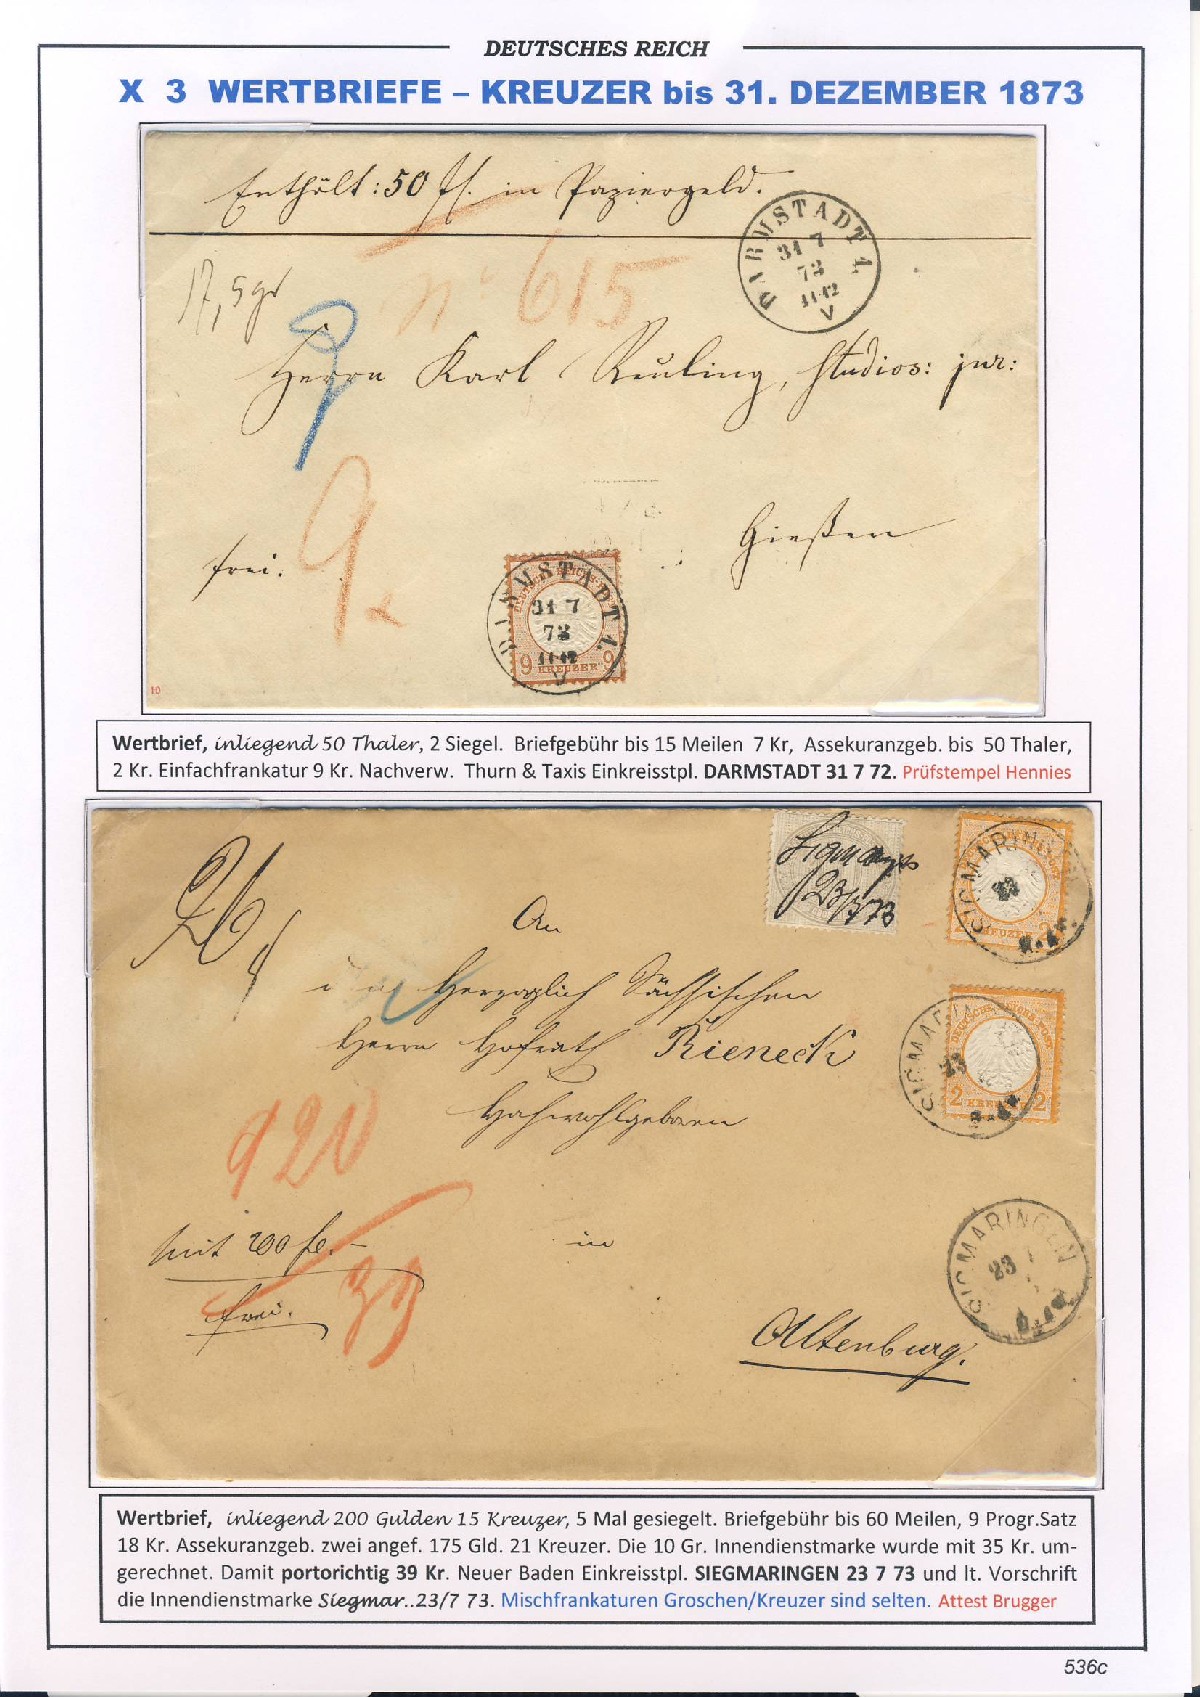 DEUTSCHES REICH
X 3 WERTBRIEFE – KREUZER bis 31. DEZEMBER 1873
Enthält: 50 fl. in Papiergeld.
DARMSTADT 1.
31 7
73
11-12
V
17,5 gr
No 615
9
Herrn Karl Reuling, Studios: jur:
Gießen
frei.
9
DARMSTADT 1.
31 7
73
11-12
V
9 KREUZER 9
10
Wertbrief, inliegend 50 Thaler, 2 Siegel. Briefgebühr bis 15 Meilen 7 Kr, Assekuranzgeb. bis 50 Thaler,
2 Kr. Einfachfrankatur 9 Kr. Nachverw. Thurn & Taxis Einkreisstpl. DARMSTADT 31 7 72. Prüfstempel Hennies
23/7 73
SIGMARINGEN
23
2 KREUZER 2
An
Herzoglich Sächsischen
Herrn Hofrath Rieneck
Hochwohlgeboren
SIGMARINGEN
23
2 KREUZER 2
920
mit 200 fl.–
in
frei.
39
SIGMARINGEN
23
Altenburg.
Wertbrief, inliegend 200 Gulden 15 Kreuzer, 5 Mal gesiegelt. Briefgebühr bis 60 Meilen, 9 Progr.Satz
18 Kr. Assekuranzgeb. zwei angef. 175 Gld. 21 Kreuzer. Die 10 Gr. Innendienstmarke wurde mit 35 Kr. um-
gerechnet. Damit portorichtig 39 Kr. Neuer Baden Einkreisstpl. SIEGMARINGEN 23 7 73 und lt. Vorschrift
die Innendienstmarke Siegmar..23/7 73. Mischfrankaturen Groschen/Kreuzer sind selten. Attest Brugger
536c